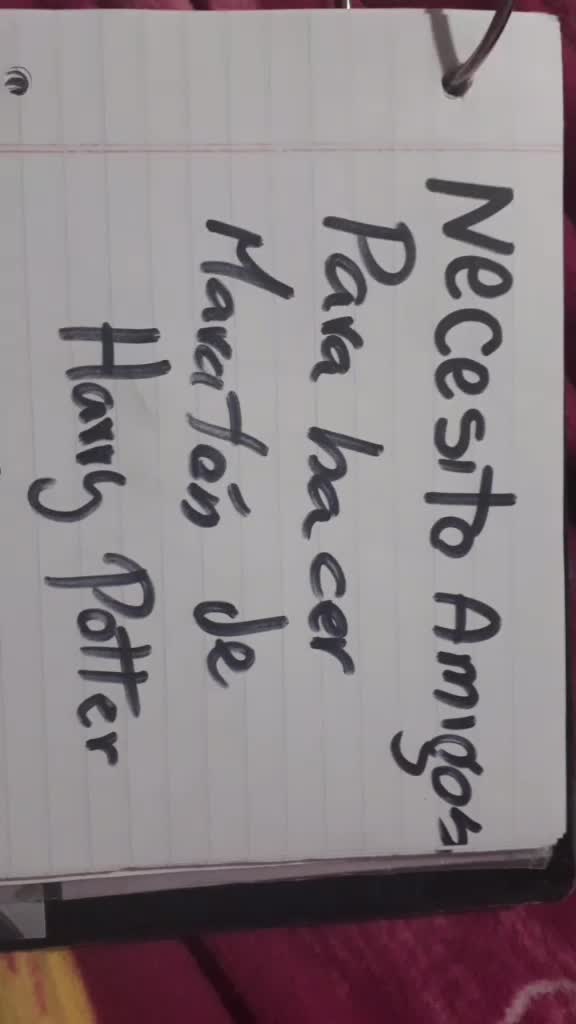 Necesito Amigos
Para hacer
Maratón de
Harry Potter